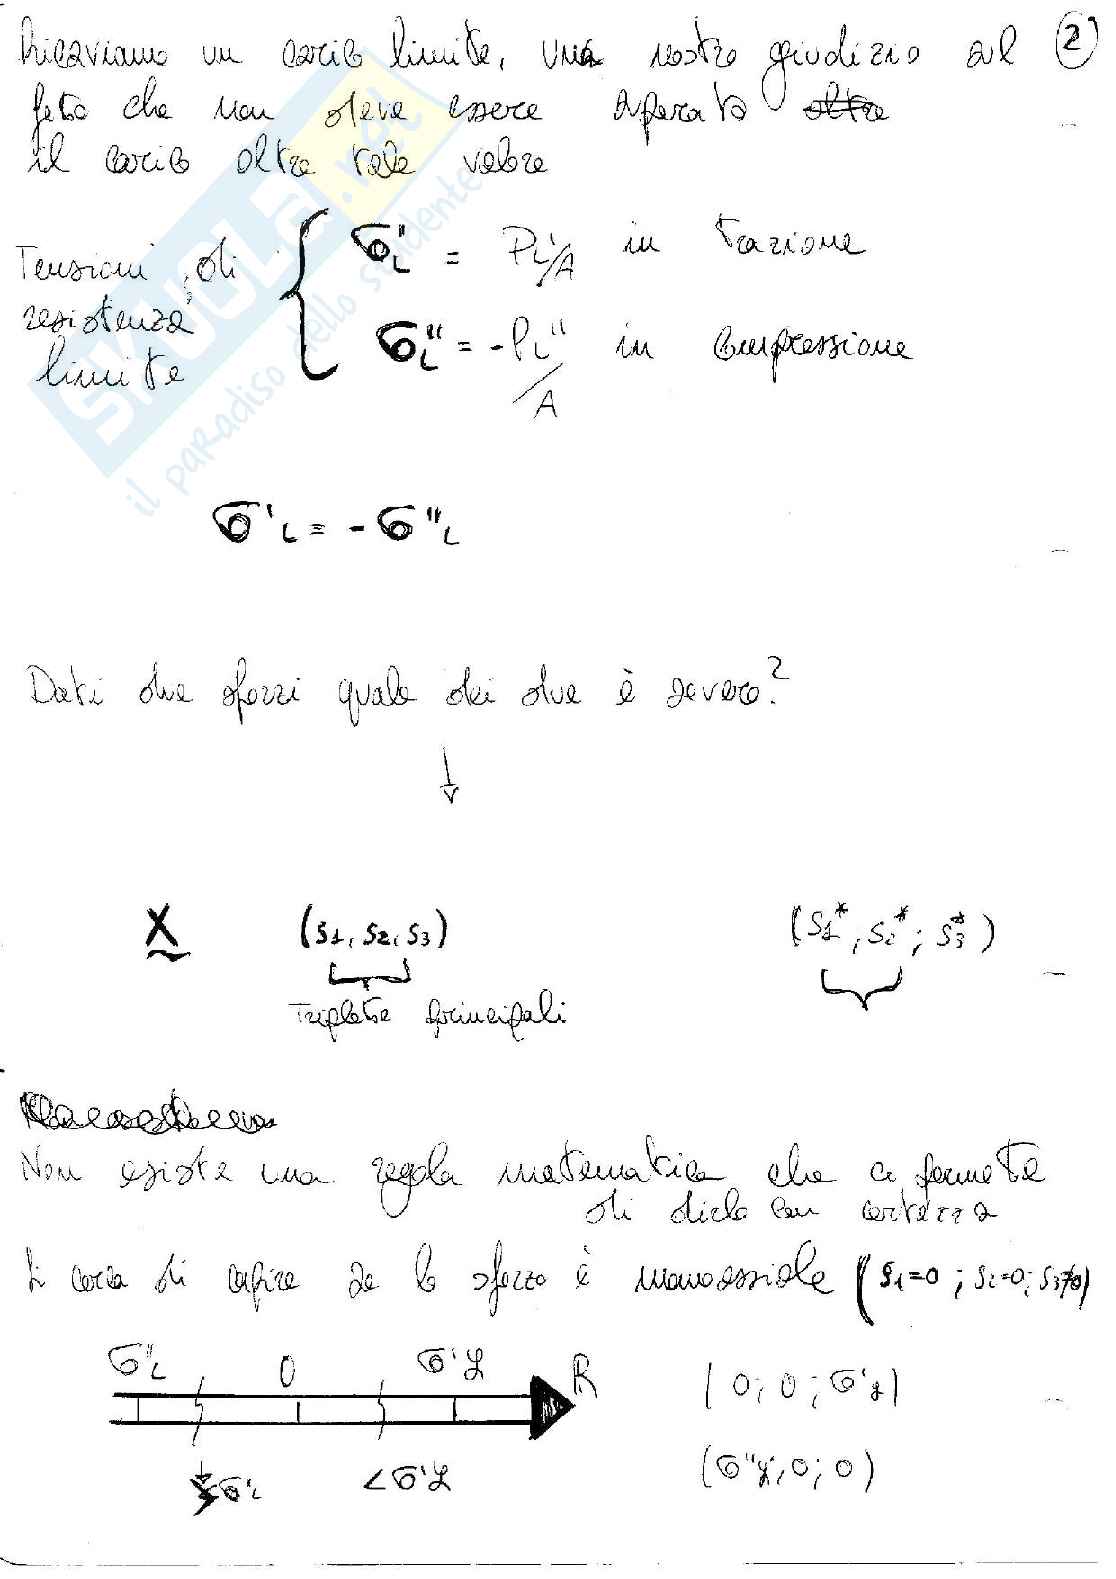 Ricaviamo un carico limite, una nostro giudizio sul (2)
fatto che non deve essere superato oltre
il carico oltre tale valore
Tensioni di resistenza limite
σ'L = PL'/A in trazione
σ"L = -PL"/A in compressione
σ'L = -σ"L
Dati due sforzi quale dei due è severo?
↓
X (s1, s2, s3) (s1*, s2*; s3*)
Triplette principali
Non esiste una regola matematica che ci permette
di dirlo con certezza
Si cerca di capire se lo sforzo è monoassiale (s1=0; s2=0; s3≠0)
σ"L 0 σ'L R (0; 0; σ'L)
σ"L <σ'L (σ"L; 0; 0)
SKUOLA.net
il paradiso dello studente